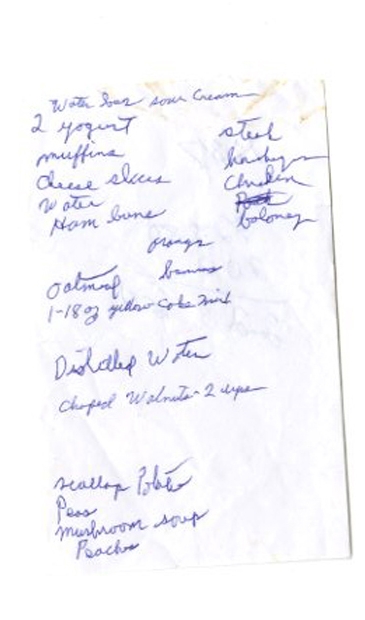 Water sour Cream
2 yogurt
muffins
cheese slices
Water
Ham bone
steak
Chicken
boloney
orange
Oatmeal
1-18 oz yellow cake mix
Distilled Water
Choped Walnuts - 2 cups
scallop Potato
Peas
mushroom soup
Peaches